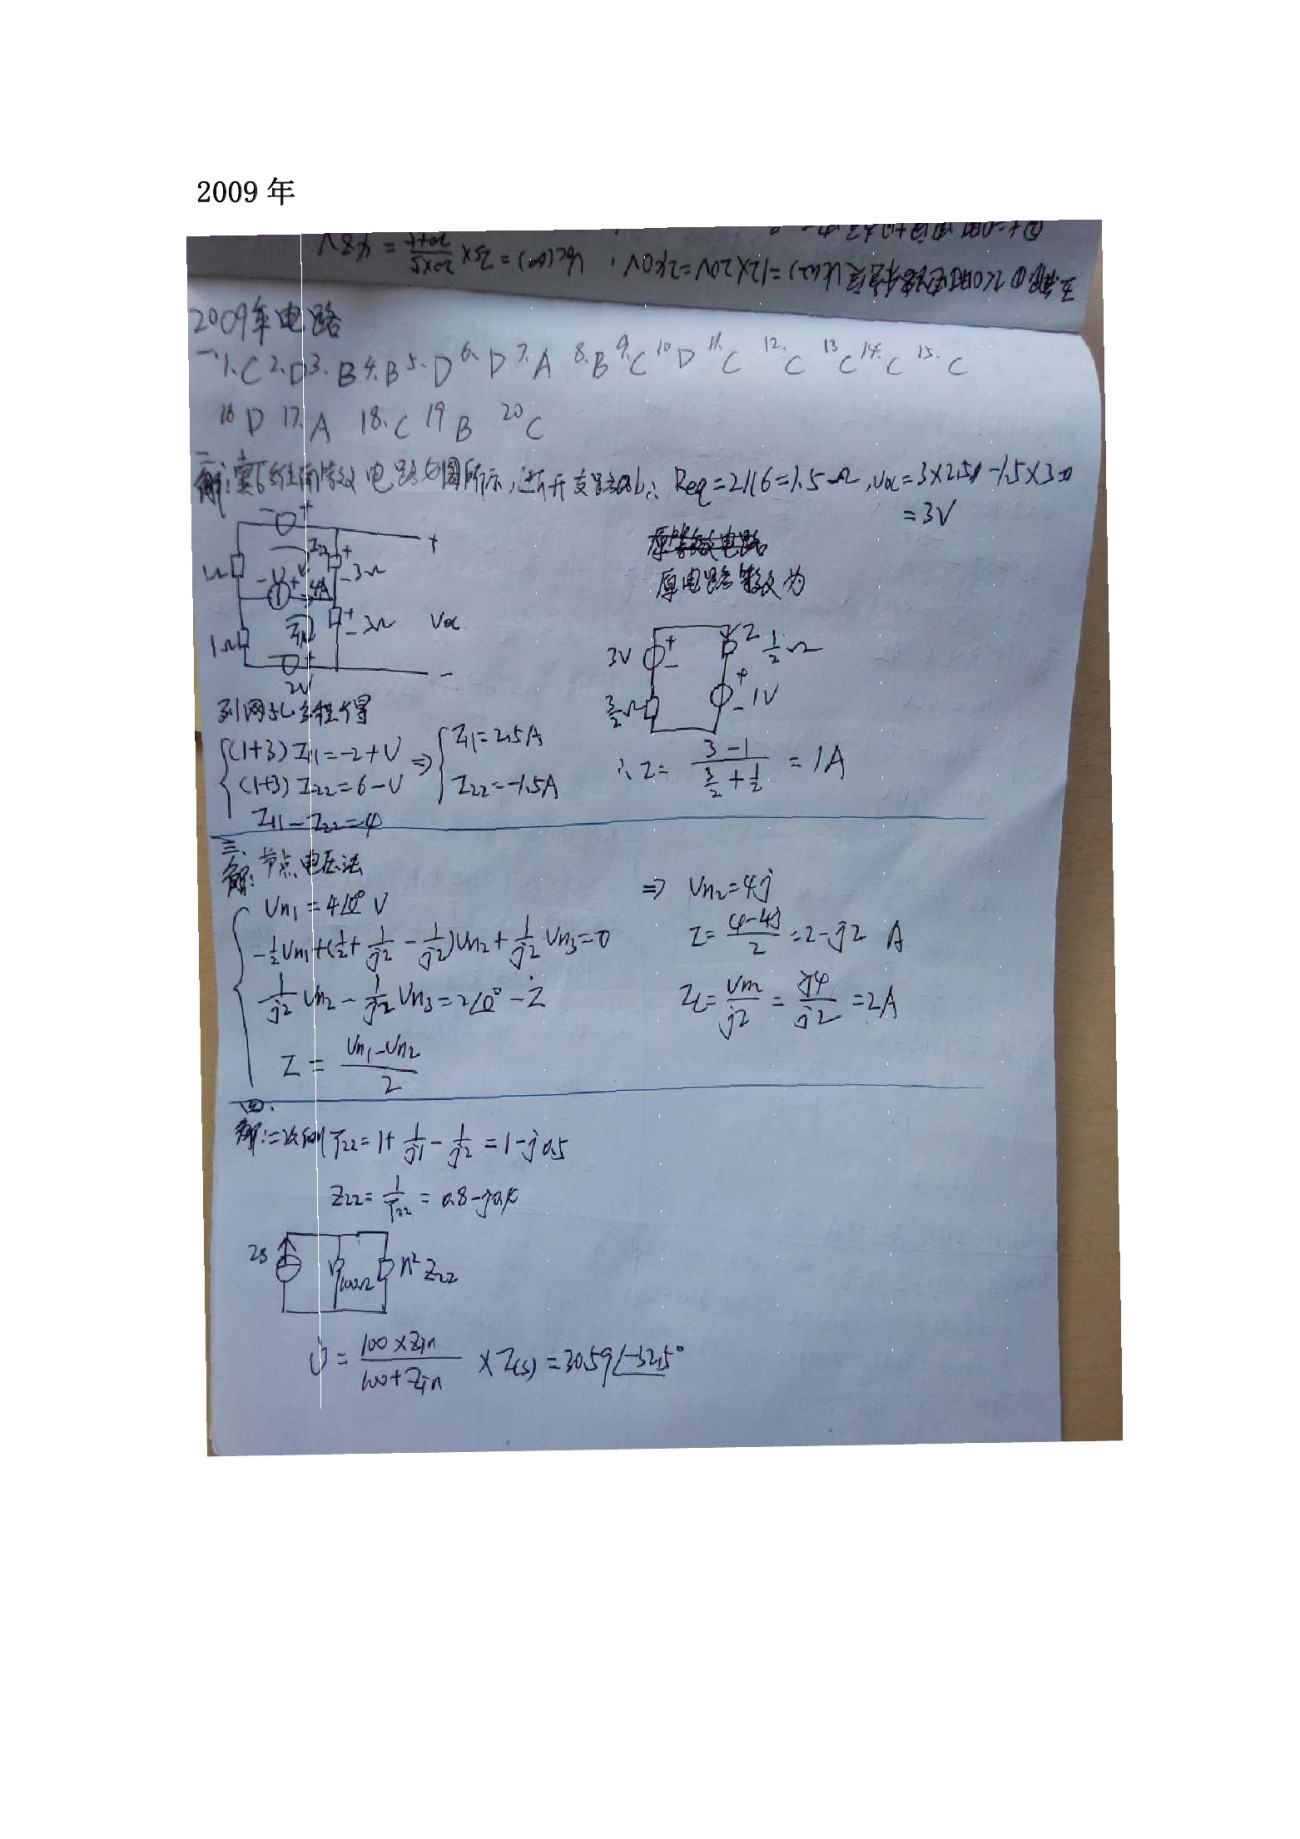 2009 年
2009年电路
一、1.C 2.D 3.B 4.B 5.D 6.D 7.A 8.B 9.C 10 D 11.C 12.C 13 C 14.C 15.C
16 D 17.A 18.C 19 B 20 C
二、
解: 电路如图所示,断开支路ab∴ Req=2//6=1.5Ω, Uoc=3×2.5-1.5×3
=3V
原电路等效为
- +
1Ω
I22 + - 3Ω
- U + 4A
+
1Ω
I11
+ - 3Ω
Uoc
- +
2V
-
3V + -
I 1/2 Ω
3/2 Ω
+ - 1V
列网孔方程得
(1+3) I11=-2+U
(1+3) I22=6-U
I11-I22=4
⇒ I11=2.5A
I22=-1.5A
∴ I= (3-1)/(3/2+1/2) = 1A
三、
解: 节点电压法
Un1=4∠0° V
-1/2 Un1+(1/2+1/j2-1/j2)Un2+1/j2 Un3=0
1/j2 Un2-1/j2 Un3=2∠0°-İ
I= (Un1-Un2)/2
⇒ Un2=4j
I= (4-4j)/2 =2-j2 A
IL= Un2/j2 = j4/j2 =2A
四、
解:二次侧 Y22=1+1/j1-1/j2=1-j0.5
Z22=1/Y22=0.8-j0.4
Is
100Ω
n² Z22
U̇= (100×Zin)/(100+Zin) ×I(s)=30.59∠-32.5°